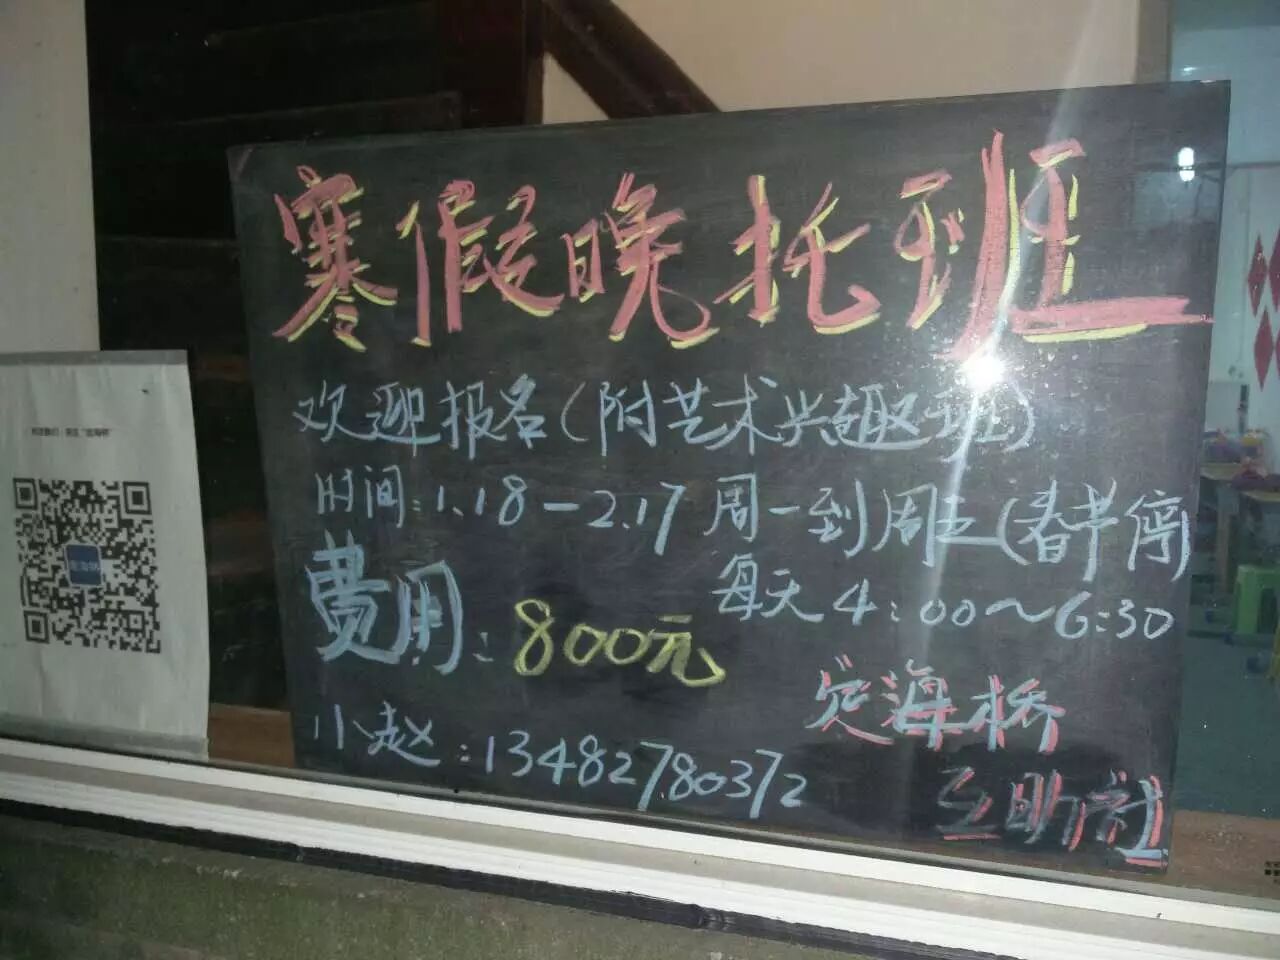 寒假晚托班
欢迎报名(附艺术兴趣班)
时间:1.18-2.17 周一到周五(春节停)
每天4:00~6:30
费用:800元
定海桥
小赵:13482780372
互助社